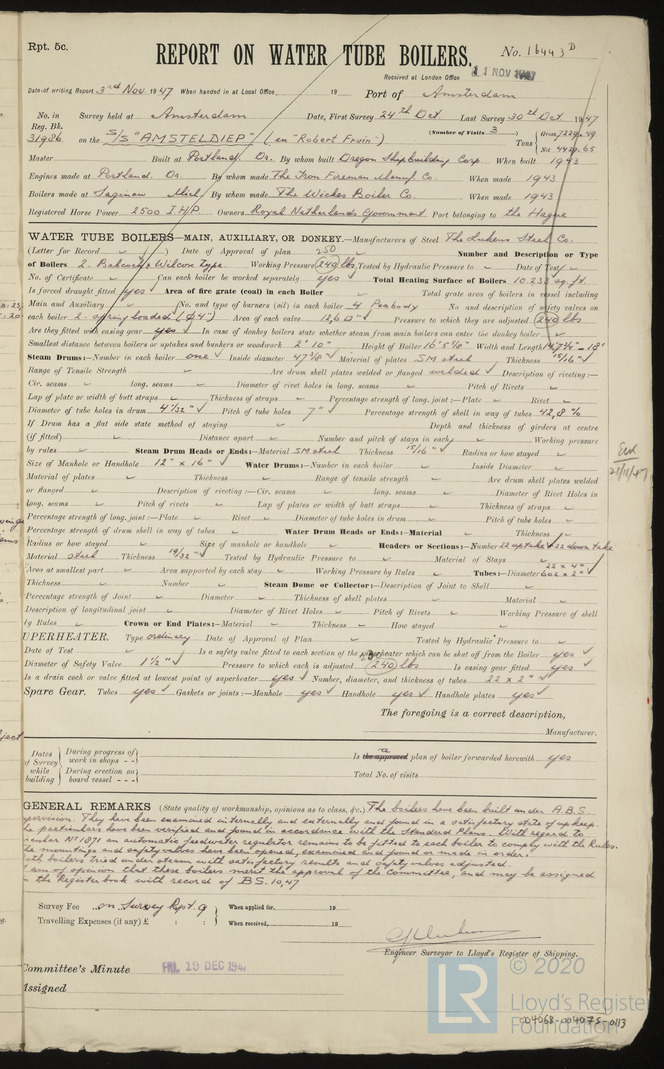 Rpt. 5c.
REPORT ON WATER TUBE BOILERS.
No. 16443D
Received at London Office
11 NOV 1947
Date of writing Report 3rd Nov. 1947 When handed in at Local Office 19 Port of Amsterdam
No. in Reg. Bk. Survey held at Amsterdam Date, First Survey 24th Oct Last Survey 30th Oct 1947
31986 on the S/S "AMSTELDIEP" (ex "Robert Fruin") (Number of Visits 3) Tons Gross 7229.49 Net 4429.65
Master Built at Portland. Or. By whom built Oregon Shipbuilding Corp. When built 1943
Engines made at Portland. Or. By whom made The Iron Foreman Manuf. Co. When made 1943
Boilers made at Saginaw Mich By whom made The Wickes Boiler Co. When made 1943
Registered Horse Power 2500 IHP Owners Royal Netherlands Government Port belonging to the Hague
WATER TUBE BOILERS—MAIN, AUXILIARY, OR DONKEY.—Manufacturers of Steel The Lukens Steel Co.
(Letter for Record ) Date of Approval of plan Number and Description or Type
250
of Boilers 2. Babcock & Wilcox type. Working Pressure 240 lbs Tested by Hydraulic Pressure to Date of Test
No. of Certificate Can each boiler be worked separately yes Total Heating Surface of Boilers 10.233 sq. ft.
Is forced draught fitted yes Area of fire grate (coal) in each Boiler Total grate area of boilers in vessel including
Main and Auxiliary No. and type of burners (oil) in each boiler 4 Peabody No. and description of safety valves on
each boiler 2 - spring loaded (ϕ4") Area of each valve 12,6 □" Pressure to which they are adjusted 240 lbs
Are they fitted with easing gear yes In case of donkey boilers state whether steam from main boilers can enter the donkey boiler
Smallest distance between boilers or uptakes and bunkers or woodwork 2' 10" Height of Boiler 16' 5⅝" Width and Length 14' 7¾" - 18'
Steam Drums:—Number in each boiler one Inside diameter 47⅞" Material of plates SM steel Thickness 15/16"
Range of Tensile Strength Are drum shell plates welded or flanged welded Description of riveting:—
Cir. seams long. seams Diameter of rivet holes in long. seams Pitch of Rivets
Lap of plate or width of butt straps Thickness of straps Percentage strength of long. joint:—Plate Rivet
Diameter of tube holes in drum 4 1/32" Pitch of tube holes 7" Percentage strength of shell in way of tubes 42,8 %
If Drum has a flat side state method of staying Depth and thickness of girders at centre
(if fitted) Distance apart Number and pitch of stays in each Working pressure
by rules Steam Drum Heads or Ends:—Material SM steel Thickness 15/16" Radius or how stayed
Size of Manhole or Handhole 12" x 16" Water Drums:—Number in each boiler Inside Diameter
Material of plates Thickness Range of tensile strength Are drum shell plates welded
or flanged Description of riveting:—Cir. seams long. seams Diameter of Rivet Holes in
long. seams Pitch of rivets Lap of plates or width of butt straps Thickness of straps
Percentage strength of long. joint:—Plate Rivet Diameter of tube holes in drum Pitch of tube holes
Percentage strength of drum shell in way of tubes Water Drum Heads or Ends:—Material Thickness
Radius or how stayed Size of manhole or handhole Headers or Sections:—Number 22 uptake & 22 down take
Material steel Thickness 19/32" Tested by Hydraulic Pressure to Material of Stays
Area at smallest part Area supported by each stay Working Pressure by Rules Tubes:—Diameter 22 x 4" 602 x 2"
Thickness Number Steam Dome or Collector:—Description of Joint to Shell
Percentage strength of Joint Diameter Thickness of shell plates Material
Description of longitudinal joint Diameter of Rivet Holes Pitch of Rivets Working Pressure of shell
by Rules Crown or End Plates:—Material Thickness How stayed
UPERHEATER. Type ordinary Date of Approval of Plan Tested by Hydraulic Pressure to
Date of Test Is a safety valve fitted to each section of the superheater which can be shut off from the Boiler yes
Diameter of Safety Valve 1½" Pressure to which each is adjusted 240 lbs Is easing gear fitted yes
Is a drain cock or valve fitted at lowest point of superheater yes Number, diameter, and thickness of tubes 22 x 2"
Spare Gear. Tubes yes Gaskets or joints:—Manhole yes Handhole yes Handhole plates yes
The foregoing is a correct description,
Manufacturer.
Dates of Survey while building
During progress of work in shops - -
During erection on board vessel - - -
Is the approved a plan of boiler forwarded herewith yes
Total No. of visits
GENERAL REMARKS (State quality of workmanship, opinions as to class, &c.) The boilers have been built under A.B.S.
supervision. They have been examined internally and externally and found in a satisfactory state of upkeep.
he particulars have been verified and found in accordance with the Standard Plans. With regard to
No 1871 an automatic feedwater regulator remains to be fitted to each boiler to comply with the Rules.
he mountings and safetyvalves have been opened, examined and found or made in order.
oth boilers tried under steam with satisfactory results and safety valves adjusted.
I am of opinion that these boilers merit the approval of the Committee, and may be assigned
in the Register book with record of BS. 10,47
Survey Fee on Survey Rpt. 9 When applied for, 19
Travelling Expenses (if any) £ : : When received, 19
Engineer Surveyor to Lloyd's Register of Shipping.
Committee's Minute FRI. 19 DEC 1947
Assigned
21/11/47
LR
© 2020
Lloyd's Register
Foundation
004068-004075-0113